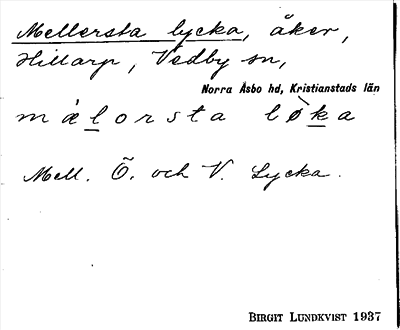 Mellersta lycka, åker,
Hillarp, Vedby sn,
Norra Åsbo hd, Kristianstads län
mælorsta løka
Mell. Ö. och V. Lycka.
BIRGIT LUNDKVIST 1937